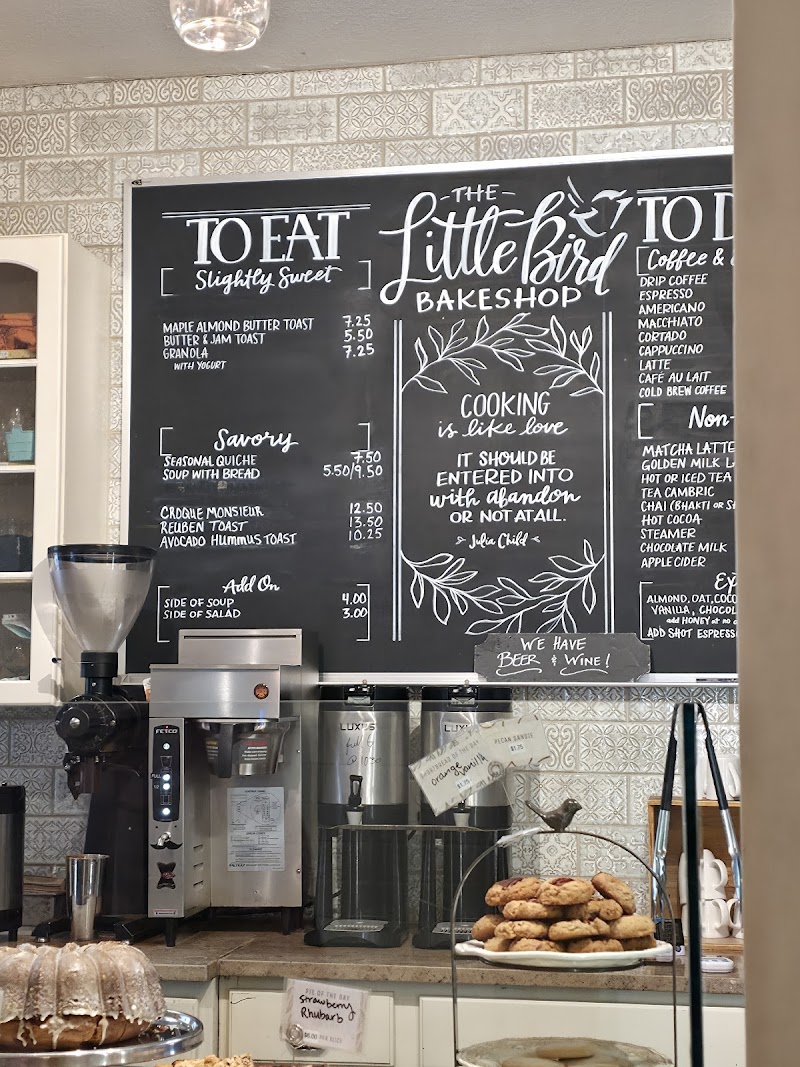 TO EAT
Slightly Sweet
MAPLE ALMOND BUTTER TOAST 7.25
BUTTER & JAM TOAST 5.50
GRANOLA 7.25
WITH YOGURT
Savory
SEASONAL QUICHE 7.50
SOUP WITH BREAD 5.50/9.50
CROQUE MONSIEUR 12.50
REUBEN TOAST 13.50
AVOCADO HUMMUS TOAST 10.25
Add On
SIDE OF SOUP 4.00
SIDE OF SALAD 3.00
THE
Little Bird
BAKESHOP
COOKING
is like love
IT SHOULD BE
ENTERED INTO
with abandon
OR NOT AT ALL.
Julia Child
WE HAVE
BEER & WINE!
TO D
Coffee &
DRIP COFFEE
ESPRESSO
AMERICANO
MACCHIATO
CORTADO
CAPPUCCINO
LATTE
CAFÉ AU LAIT
COLD BREW COFFEE
Non-
MATCHA LATTE
GOLDEN MILK L
HOT OR ICED TEA
TEA CAMBRIC
CHAI (BHAKTI OR S
HOT COCOA
STEAMER
CHOCOLATE MILK
APPLE CIDER
Ex
ALMOND, OAT, COCO
VANILLA, CHOCOL
add HONEY at no
ADD SHOT ESPRESS
FETCO
LUXUS
LUXUS
PECAN SANDIE
$1.75
SHORTBREAD OF THE DAY
orange
vanilla
$1.75
PIE OF THE DAY
Strawberry
Rhubarb
$6.00 PER SLICE